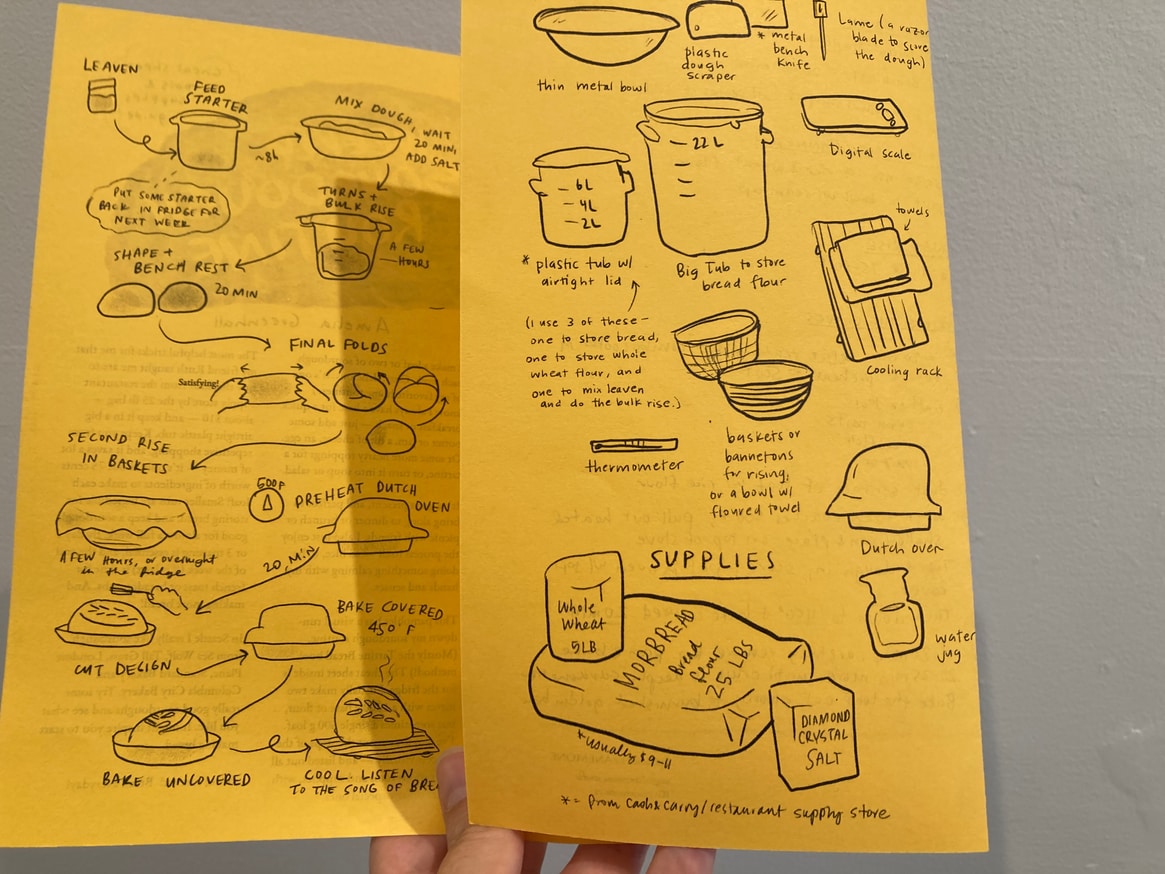 LEAVEN
FEED
STARTER
~8h
MIX DOUGH, WAIT
20 MIN,
ADD SALT
PUT SOME STARTER
BACK IN FRIDGE FOR
NEXT WEEK
TURNS +
BULK RISE
A FEW
HOURS
SHAPE +
BENCH REST
20 MIN
FINAL FOLDS
Satisfying!
SECOND RISE
IN BASKETS
A FEW HOURS, OR overnight
in the fridge
500F
PREHEAT DUTCH
OVEN
20 MIN
CUT DESIGN
BAKE COVERED
450°F
BAKE UNCOVERED
COOL. LISTEN
TO THE SONG OF
thin metal bowl
plastic
dough
scraper
* metal
bench
knife
Lame (a razor
blade to score
the dough)
6L
4L
2L
* plastic tub w/
airtight lid
(I use 3 of these—
one to store bread,
one to store whole
wheat flour, and
one to mix leaven
and do the bulk rise.)
22 L
Big Tub to store
bread flour
Digital scale
towels
cooling rack
thermometer
baskets or
bannetons
for rising,
or a bowl w/
floured towel
Dutch oven
water
jug
SUPPLIES
Whole
Wheat
5LB
MORBREAD
Bread
flour
25 LBS
*usually $9-11
DIAMOND
CRYSTAL
SALT
*= from cash&carry/restaurant supply store